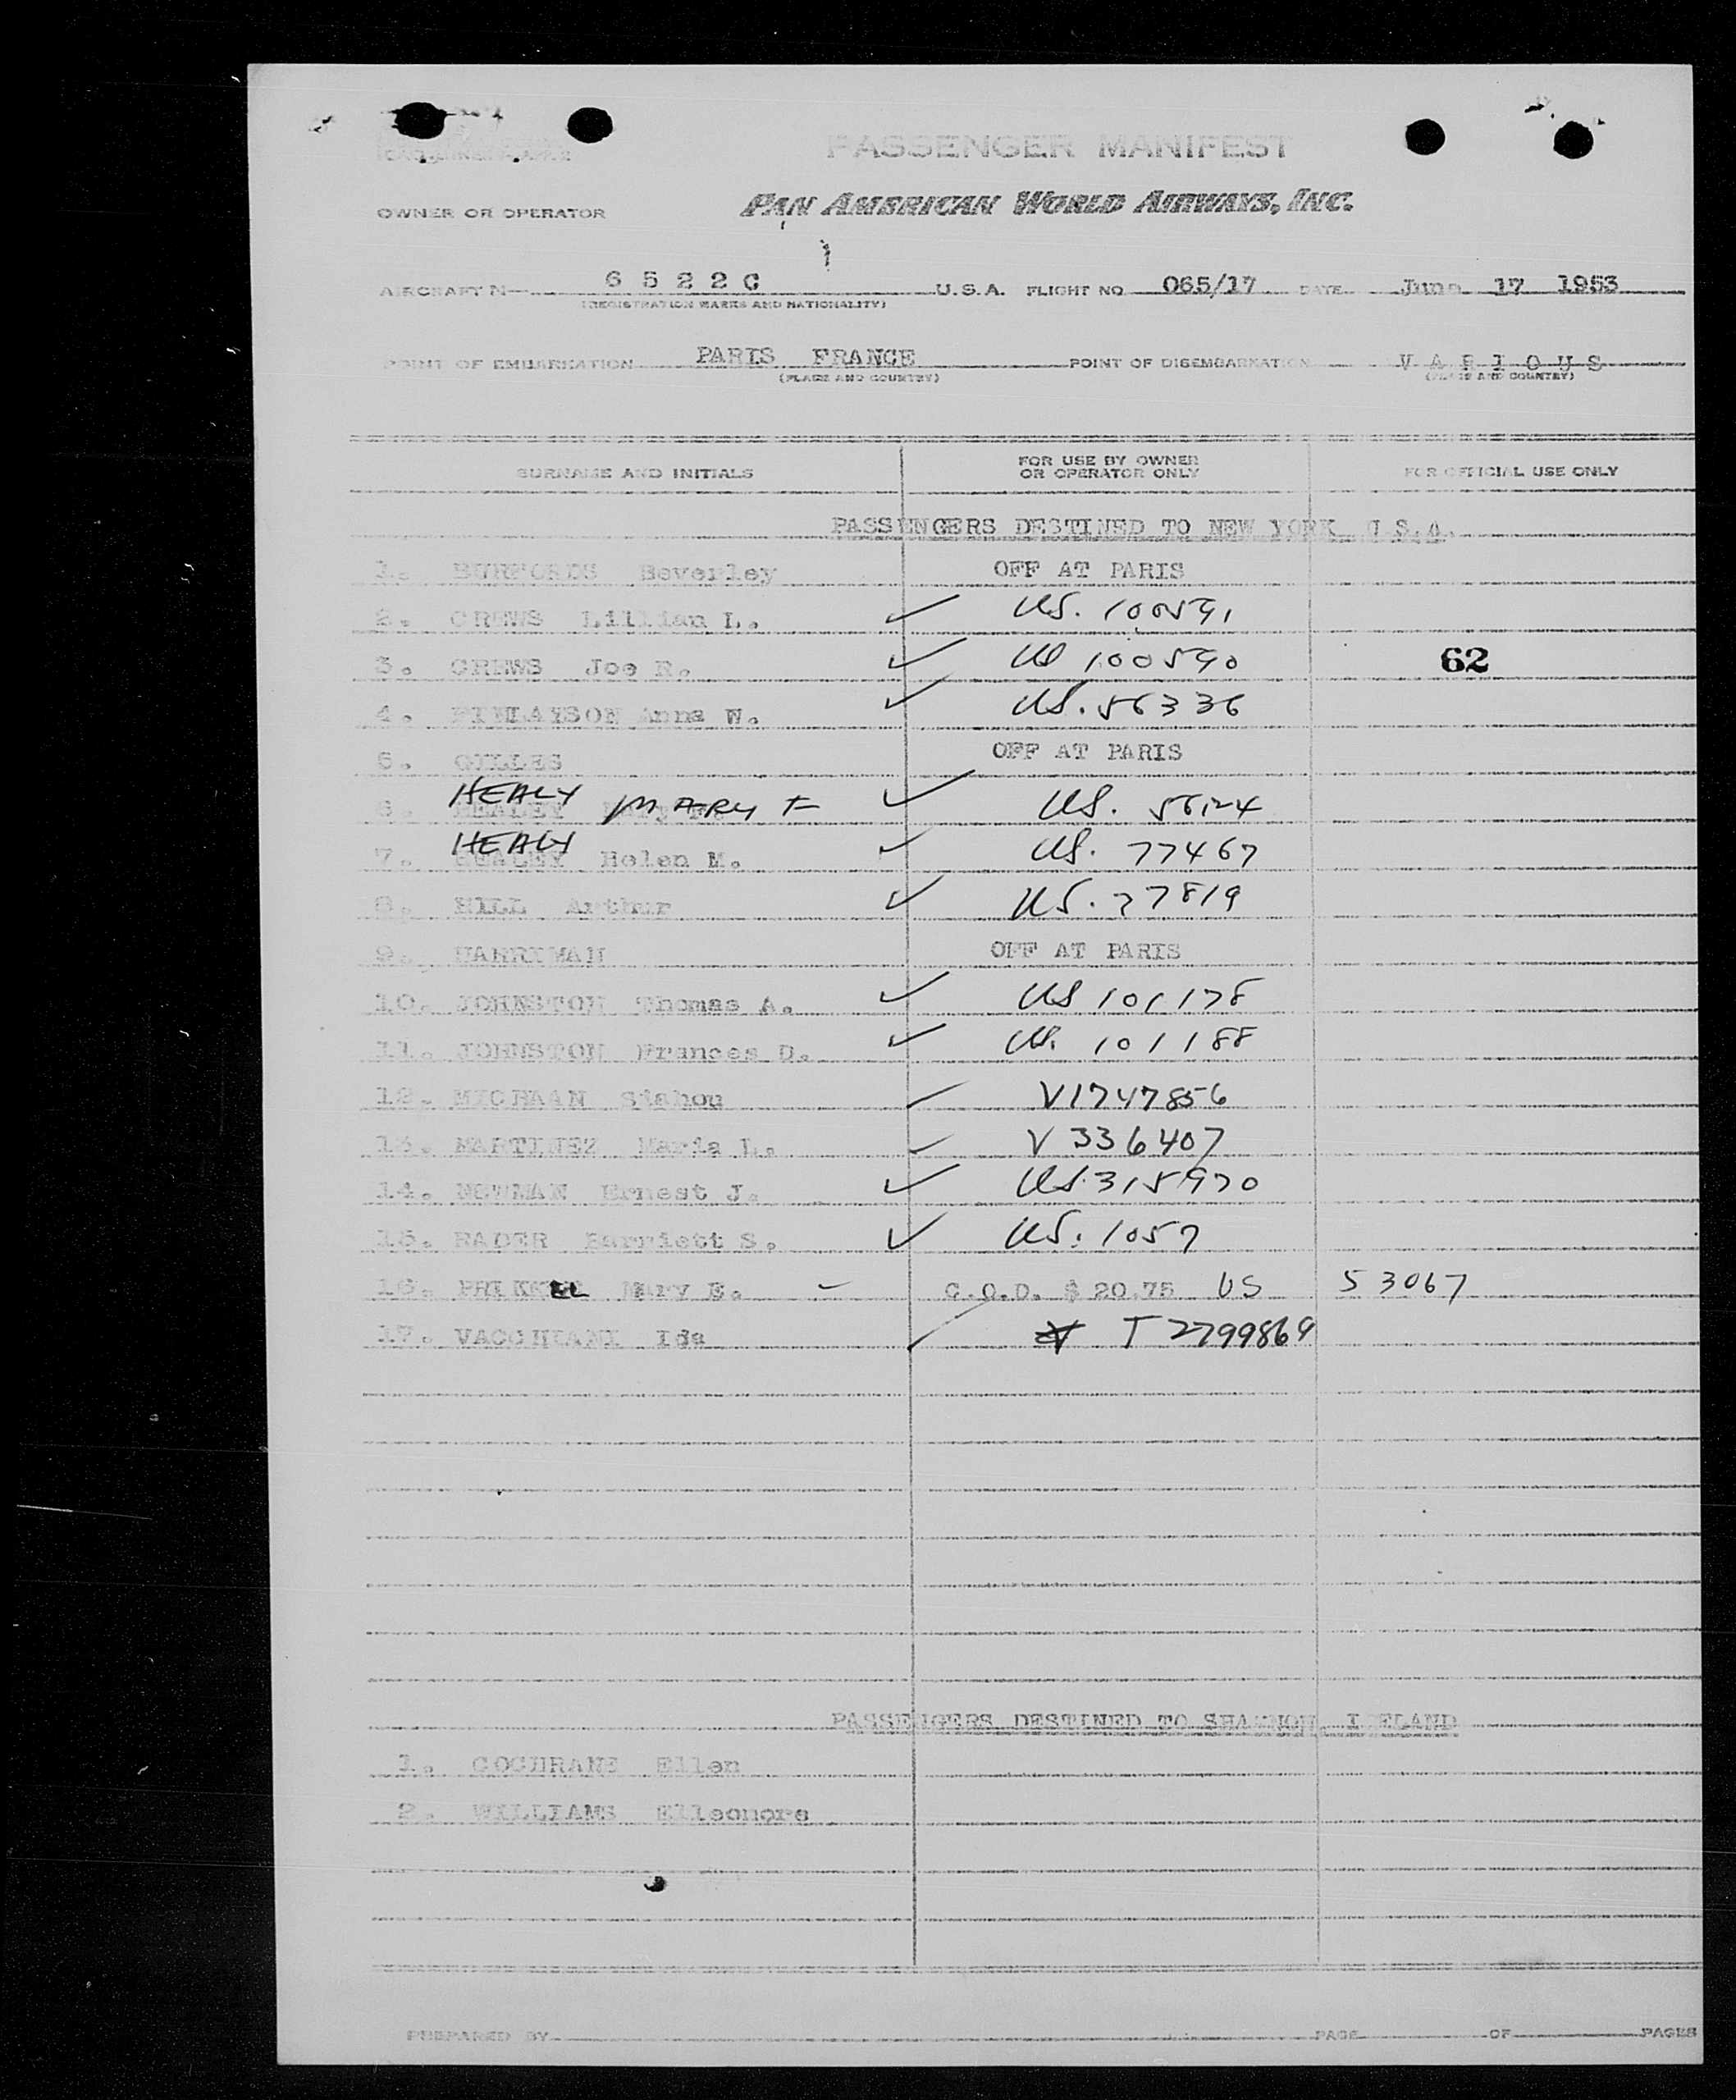 PASSENGER MANIFEST
OWNER OR OPERATOR PAN AMERICAN WORLD AIRWAYS, INC.
AIRCRAFT N— 6 5 2 2 C U.S.A. FLIGHT NO 065/17 DATE June 17 1953
(REGISTRATION MARKS AND NATIONALITY)
POINT OF EMBARKATION PARIS FRANCE POINT OF DISEMBARKATION V A R I O U S
(PLACE AND COUNTRY) (PLACE AND COUNTRY)
SURNAME AND INITIALS FOR USE BY OWNER OR OPERATOR ONLY FOR OFFICIAL USE ONLY
PASSENGERS DESTINED TO NEW YORK U.S.A.
1. BURFORDS Beverley OFF AT PARIS
2. CREWS Lillian L. ✓ US. 100591
3. CREWS Joe R. ✓ US 100590 62
4. FINLAYSON Anna W. ✓ US. 56336
5. GILLES OFF AT PARIS
6. HEALY MARY F ✓ US. 56124
7. HEALY Helen M. ✓ US. 77467
8. HILL Arthur ✓ US. 27819
9. HARRIMAN OFF AT PARIS
10. JOHNSTON Thomas A. ✓ US 101178
11. JOHNSTON Frances D. ✓ US. 101188
12. MICHAAN Siahou ✓ V1747856
13. MARTINEZ Maria L. ✓ V 336407
14. NEWMAN Ernest J. ✓ US.315970
15. RADER Harriett S. ✓ US. 1057
16. Mary E. C.O.D. $ 20.75 US 53067
17. VACCHIANI Ida T 2799869
PASSENGERS DESTINED TO SHANNON, IRELAND
1. COCHRANE Ellen
2. WILLIAMS Elleonore
PREPARED BY PAGE OF PAGES